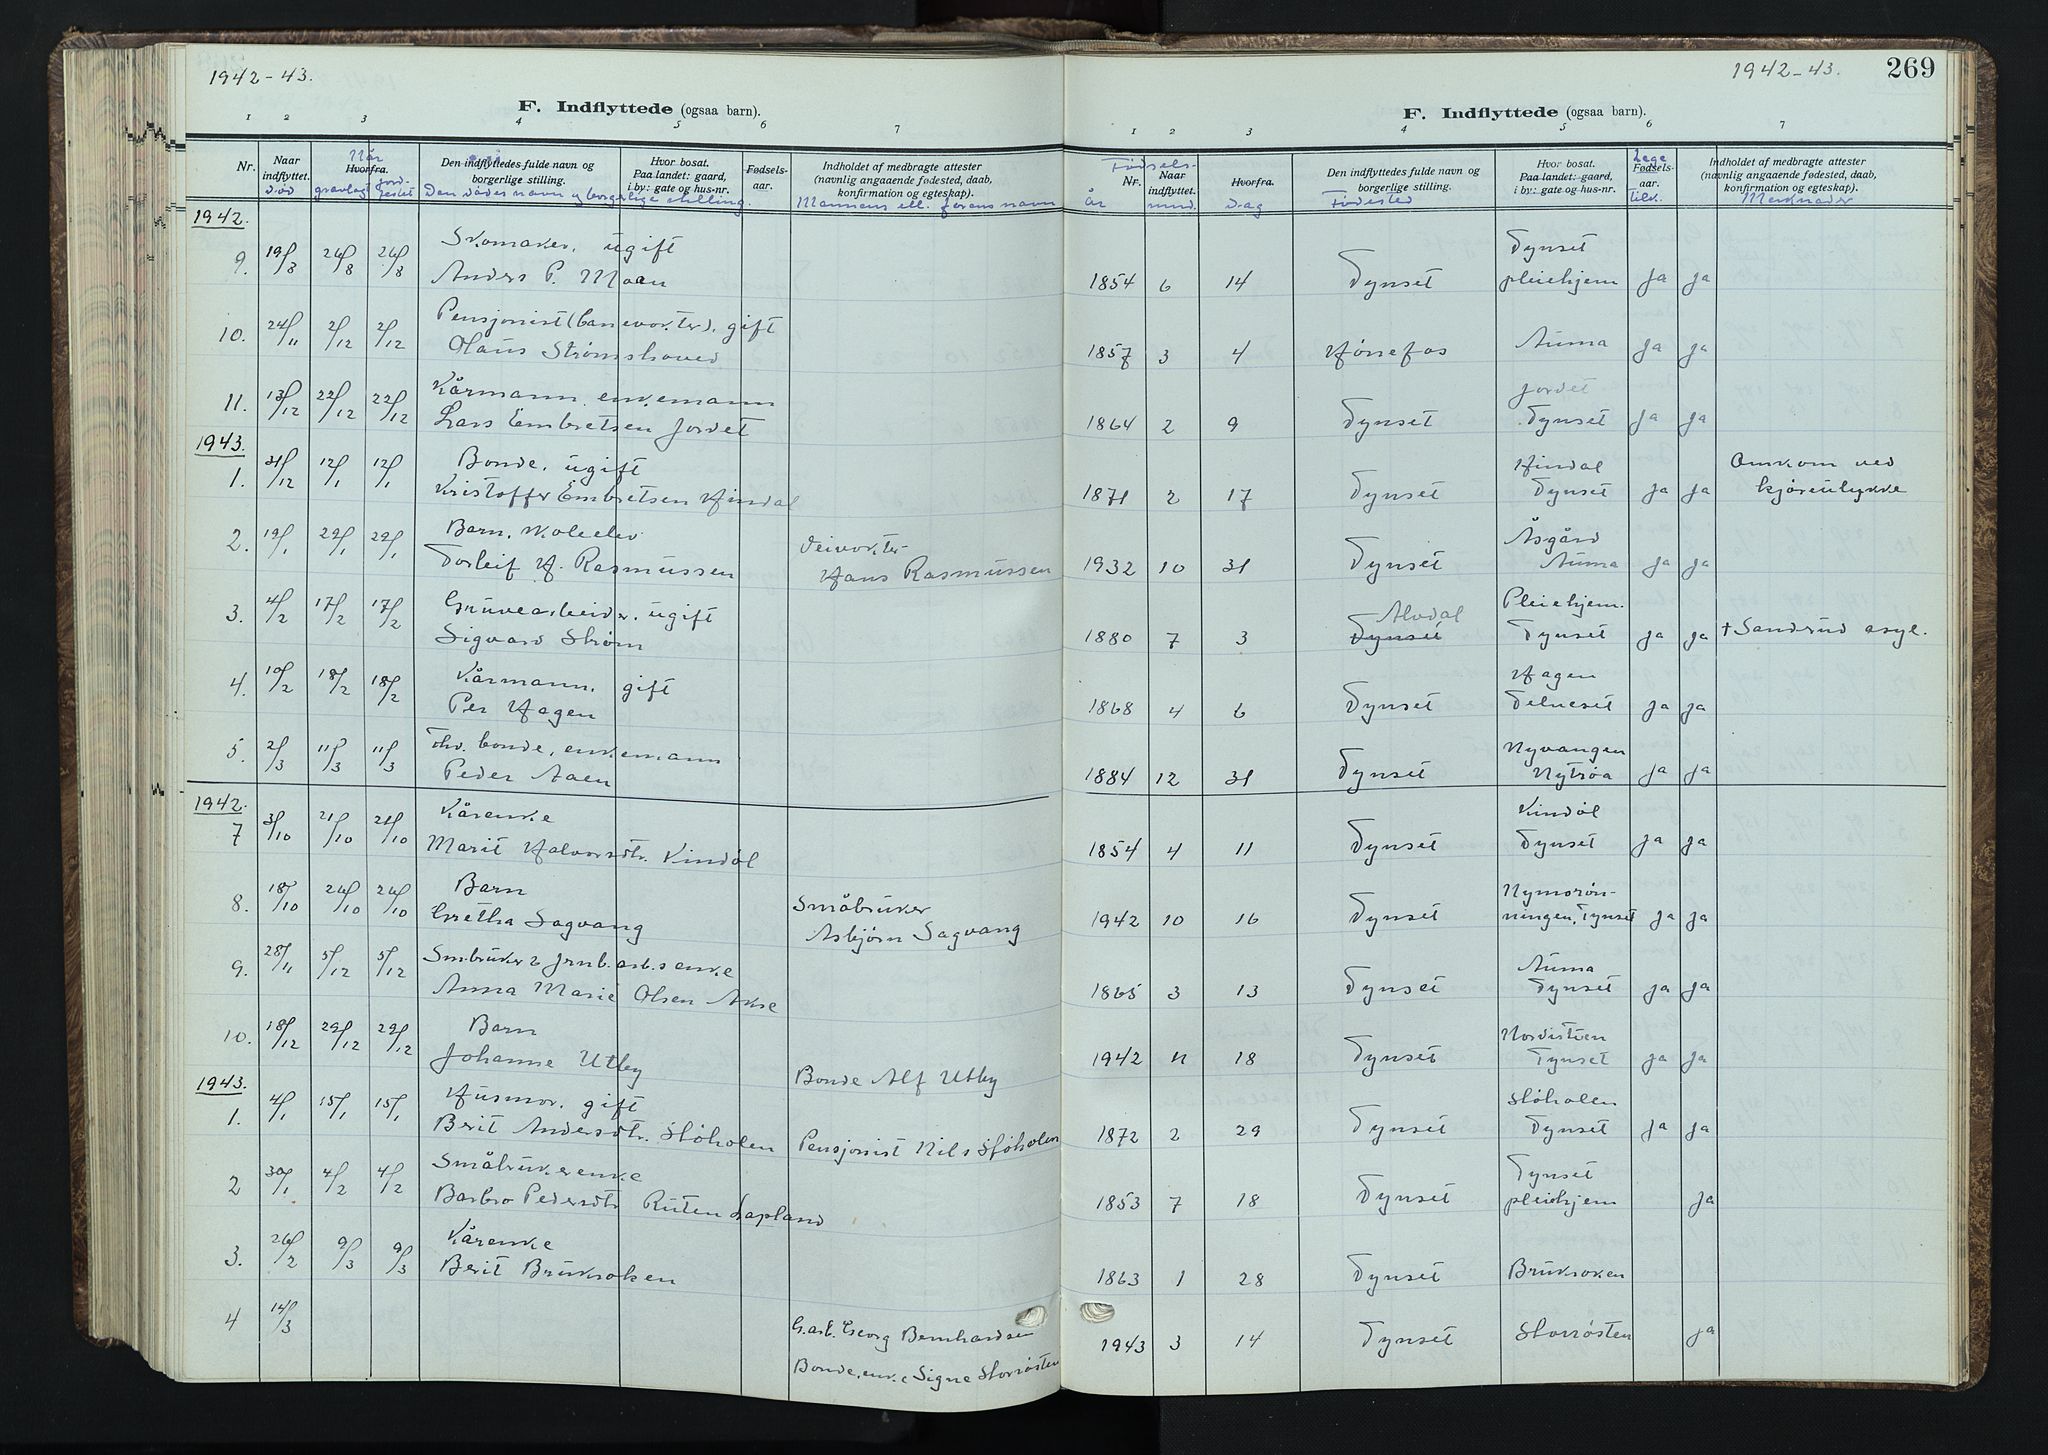 1942-43.
F. Indflyttede (ogsaa barn).
1 2 3 4 5 6 7
Nr.
Naar indflyttet.
død
Når
Hvorfra.
gravlagt
jordfestet
Den indflyttedes fulde navn og borgerlige stilling.
Den dødes navn og borgerlige stilling.
Hvor bosat. Paa landet: gaard, i by: gate og hus-nr.
Fødselsaar.
Indholdet af medbragte attester (navnlig angaaende fødested, daab, konfirmation og egteskap).
Mannens ell. farens navn
1942.
9. 19/8 26/8 26/8 Skomaker, ugift
Anders P. Moen
10. 24/11 2/12 2/12 Pensjonist (banevokter), gift
Olaus Strømshoved
11. 13/12 22/12 22/12 Kårmann, enkemann
Lars Embretsen Jordet
1943.
1. 31/12 12/1 12/1 Bonde, ugift
Kristoffer Embretsen Hindal
2. 19/1 29/1 29/1 Barn, skoleelev
Torleif H. Rasmussen
Veivokter
Hans Rasmussen
3. 4/2 17/2 17/2 Gruvearbeider, ugift
Sigvard Strøm
4. 10/2 18/2 18/2 Kårmann, gift
Per Hagen
5. 2/3 11/3 11/3 Fhv. bonde, enkemann
Peder Aaen
1942.
7 3/10 21/10 21/10 Kårenke
Marit Halvorsdtr. Kindøl
8. 18/10 26/10 26/10 Barn
Gretha Sagvang
Småbruker
Asbjørn Sagvang
9. 28/11 5/12 5/12 Smbruker & jrnb.arb.s enke
Anna Marie Olsen Akse
10. 18/12 29/12 29/12 Barn
Johanne Utby
Bonde Alf Utby
1943.
1. 4/1 15/1 15/1 Husmor, gift
Berit Andersdtr. Støholen
Pensjonist Nils Støholen
2 30/1 4/2 4/2 Småbrukerenke
Barbro Pedersdtr Ruten Lapland
3. 26/2 9/3 9/3 Kårenke
Berit Bruksoken
4 14/3
G.arb. Georg Bernhardsen
Bonde,enke Signe Storrøsten
1942-43.
269
F. Indflyttede (ogsaa barn).
1 2 3 4 5 6 7
Fødsels-
Nr.
år
Naar indflyttet.
mnd.
Hvorfra.
dag
Den indflyttedes fulde navn og borgerlige stilling.
Fødested
Hvor bosat. Paa landet: gaard, i by: gate og hus-nr.
Lege
Fødselsaar.
tilk.
Indholdet af medbragte attester (navnlig angaaende fødested, daab, konfirmation og egteskap).
Merknader
Tynset
1854 6 14 Tynset pleiehjem Ja Ja
1857 3 4 Hønefos Auma Ja Ja
Jordet
1864 2 9 Tynset Tynset Ja Ja
Hindal
Omkom ved
1871 2 17 Tynset Tynset Ja Ja kjøreulykke
Åsgård
1932 10 31 Tynset Auma Ja Ja
Alvdal
Pleiehjem.
1880 7 3 Tynset Tynset Ja Ja + Sanderud asyl.
Hagen
1868 4 6 Tynset Telneset Ja Ja
Nyvangen
1884 12 31 Tynset Nytrøa Ja Ja
Kindøl
1854 4 11 Tynset Tynset Ja Ja
Nymorøn-
1942 10 16 Tynset ningen, Tynset Ja Ja
Auma
1865 3 13 Tynset Tynset Ja Ja
Nordistuen
1942 11 18 Tynset Tynset Ja Ja
Støholen
1872 2 29 Tynset Tynset Ja Ja
Tynset
1853 7 18 Tynset pleiehjem Ja
1863 1 28 Tynset Bruksoken
1943 3 14 Tynset Storrøsten Ja